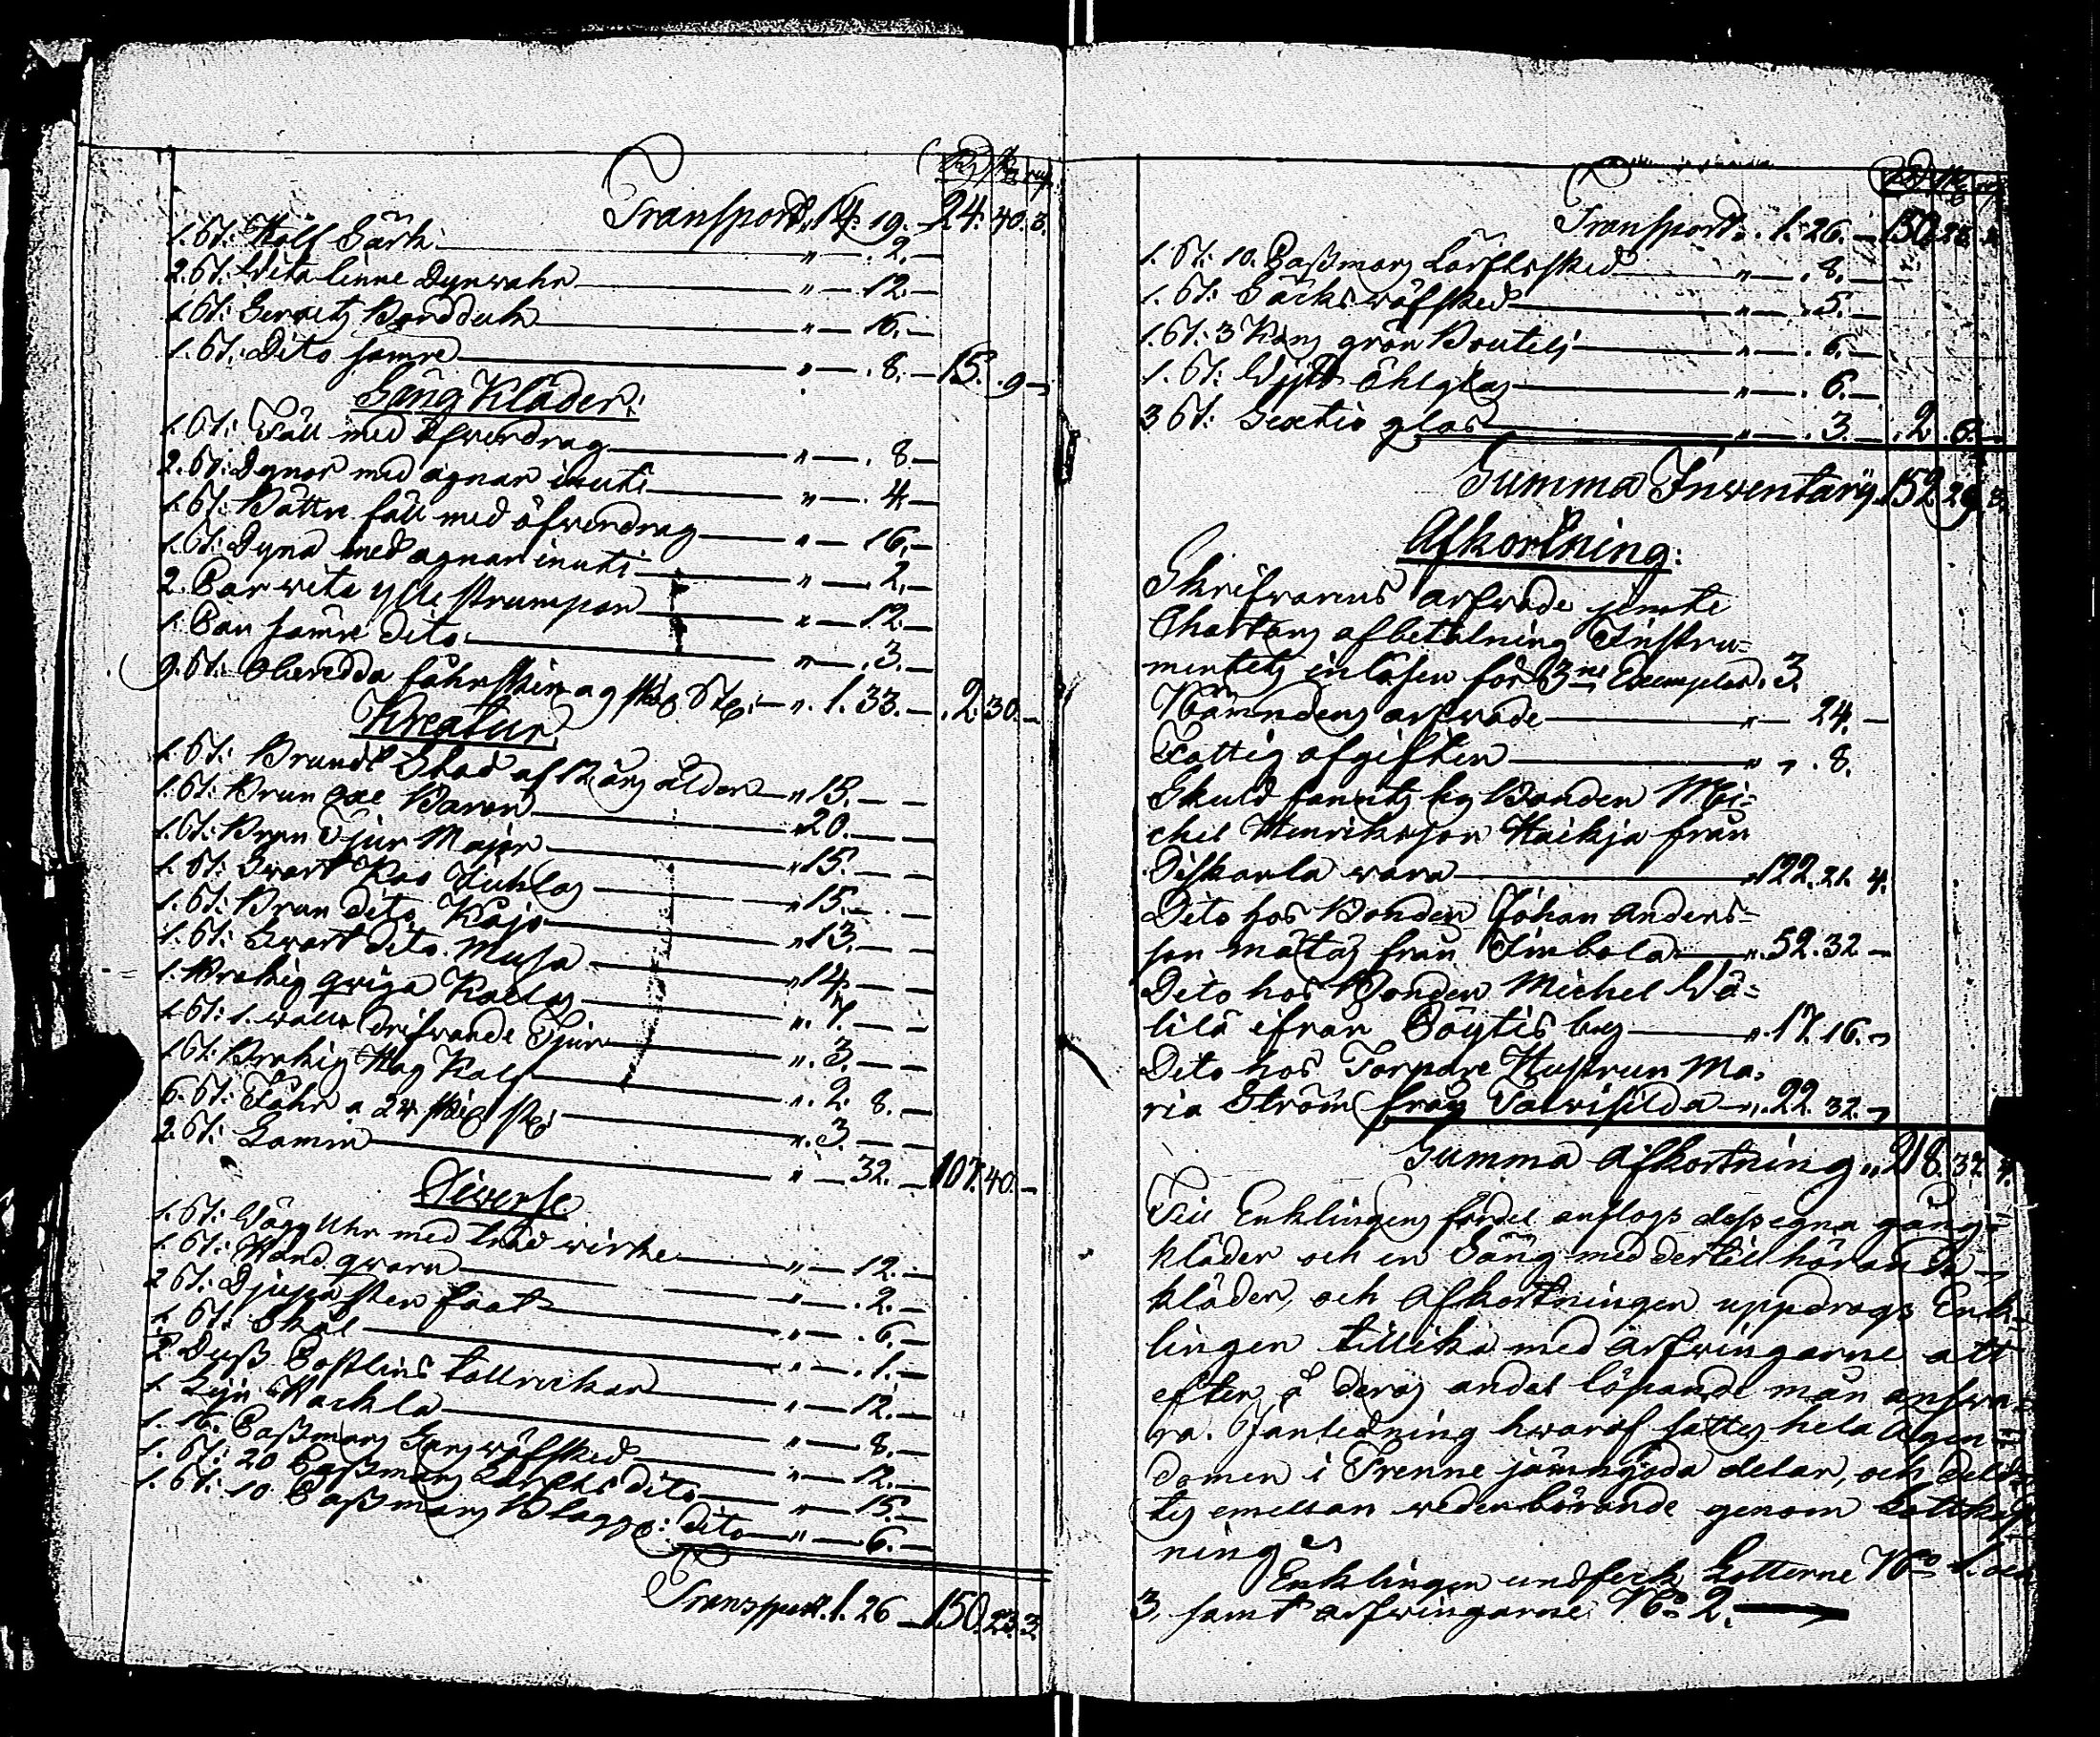 Transport. 14. 19. — 24. 40. 3.
1. St: Kålf Särk — " — . 2. —
2. St: Wita linne Dynwahr — " — 12. —
1. St: Serwietz Bordduk — " — 16. —
1. St: Dito sämre — " — . 8. — 15. . 9 —
Säng Kläder:
1. St: Fäll med öfverdrag — " — . 8 —
2. St: Dynor med agnar inuti — " — . 4 —
1. St: Båttn fäll med öfverdrag — " — 16. —
1. St: Dyna med agnar inuti — " — 2. —
2. Par wita ylle strumpor — " — 12. —
1. Par sämre dito — " — . 3. —
9. St: Oberedda fåhrskin a 9 sk St: — " . 1. 33. — . 2. 30. —
Kreatur.
1. St: Brundt Stod af 12 års ålder — " 13. — —
1. St: Brun oxe Baron — " 20. — —
1. St: Brun Tjur Major — " 15. — —
1. St: Swart Koo — " 15. — —
1. St: Brun dito Kajo — " 13. — —
1. St: Swart dito Musa — " 14. — —
1. Brokig qwiga — " 7. — —
1. St: 1. drifwande Tjur — " . 3. — —
1. St: Brokig Kalf — " . 2. 8. —
6. St: Fåhr a 24 sk st — " . 3. — —
2. St: Lamm — " — 32. — 107. 40. —
Diverse
1. St: Wägg Uhr med träd wirke — " — 12. —
1. St: Hand qvarn — " — . 2. —
2 St: Djupa sten faat — " — . 6. —
1. St: Skål — " — . 1. —
2 Duß Poßlins tallrickar — " — 12. —
1. Lijn Hackla — " — 8. —
1. 16. Paßmans wäfsked — " — 12. —
1. St: 20 Paßmans Lärfts dito — " — 15. —
1. St: 10 Paßmans dito — " — 6. —
Transport. 1. 26 — 150. 23. 3.
Transport. . 1. 26. — 150. 23.
1. St: 10. Paßmans Lärftssked — " — . 8. —
1. St: Säcks wäfsked — " — . 5. —
1. St: 3 Kans grön Boutelj — " — . 6. —
1. St: Öhlglas — " — . 6. —
3 St: glas — " — . 3. — . 2. 6. —
Summa Inventarij. 152. 29. 3.
Afkortning:
Skrifvarens arfwode jemte
Chartans afbetalning Instru=
mentetz inlösen för 3ne Exemplar. 3.
Nämndens arfwode — " — 24. —
Fattig afgiften — " . 8.
Skuld Bonden Mi=
chel Henriksson Haikja från
Diskarla wara — " 122. 21. 4.
Dito hos Bonden Johan Anders=
son Mätas från Timbola — " . 52. 32 —
Dito hos Bonden Michel Wä=
lilä ifrån Pöytis by — " . 17. 16. —
Dito hos Torpare Hustrun Ma=
ria Ström från — " . 22. 32. —
Summa Afkortning " 218. 37. 4.
Till Enklingens fördel anslogs deß egna gång=
kläder och en Säng med dertill hörande
kläder, och Afkortningen uppdrogs Enk=
lingen tillika med Arfwingarne att
efter å deras andel löpande mån answa=
ra. I anledning hwaraf sattes hela Ägen=
domen i Trenne jämngoda delar, och del=
tes emellan wederbörande genom Lottkast=
ning
Enklingen undfeck Lotterne No 1.
3. samt Arfwingarne No 2.